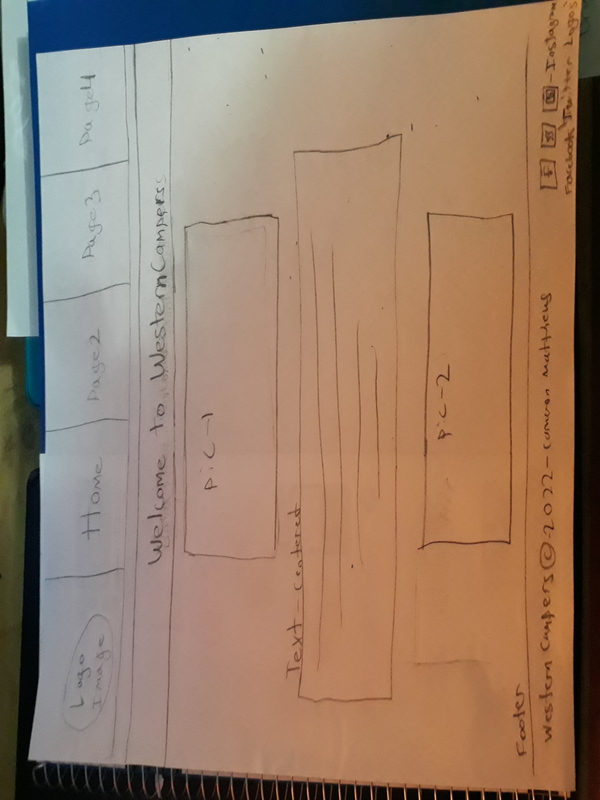 Logo
Image
Home
Page2
Page3
Page4
Welcome to WesternCampers
pic-1
Text-centered
pic-2
Footer
Western Campers © 2022 - Cameron Matthews
f
- Instagram
Facebook Twitter Logos